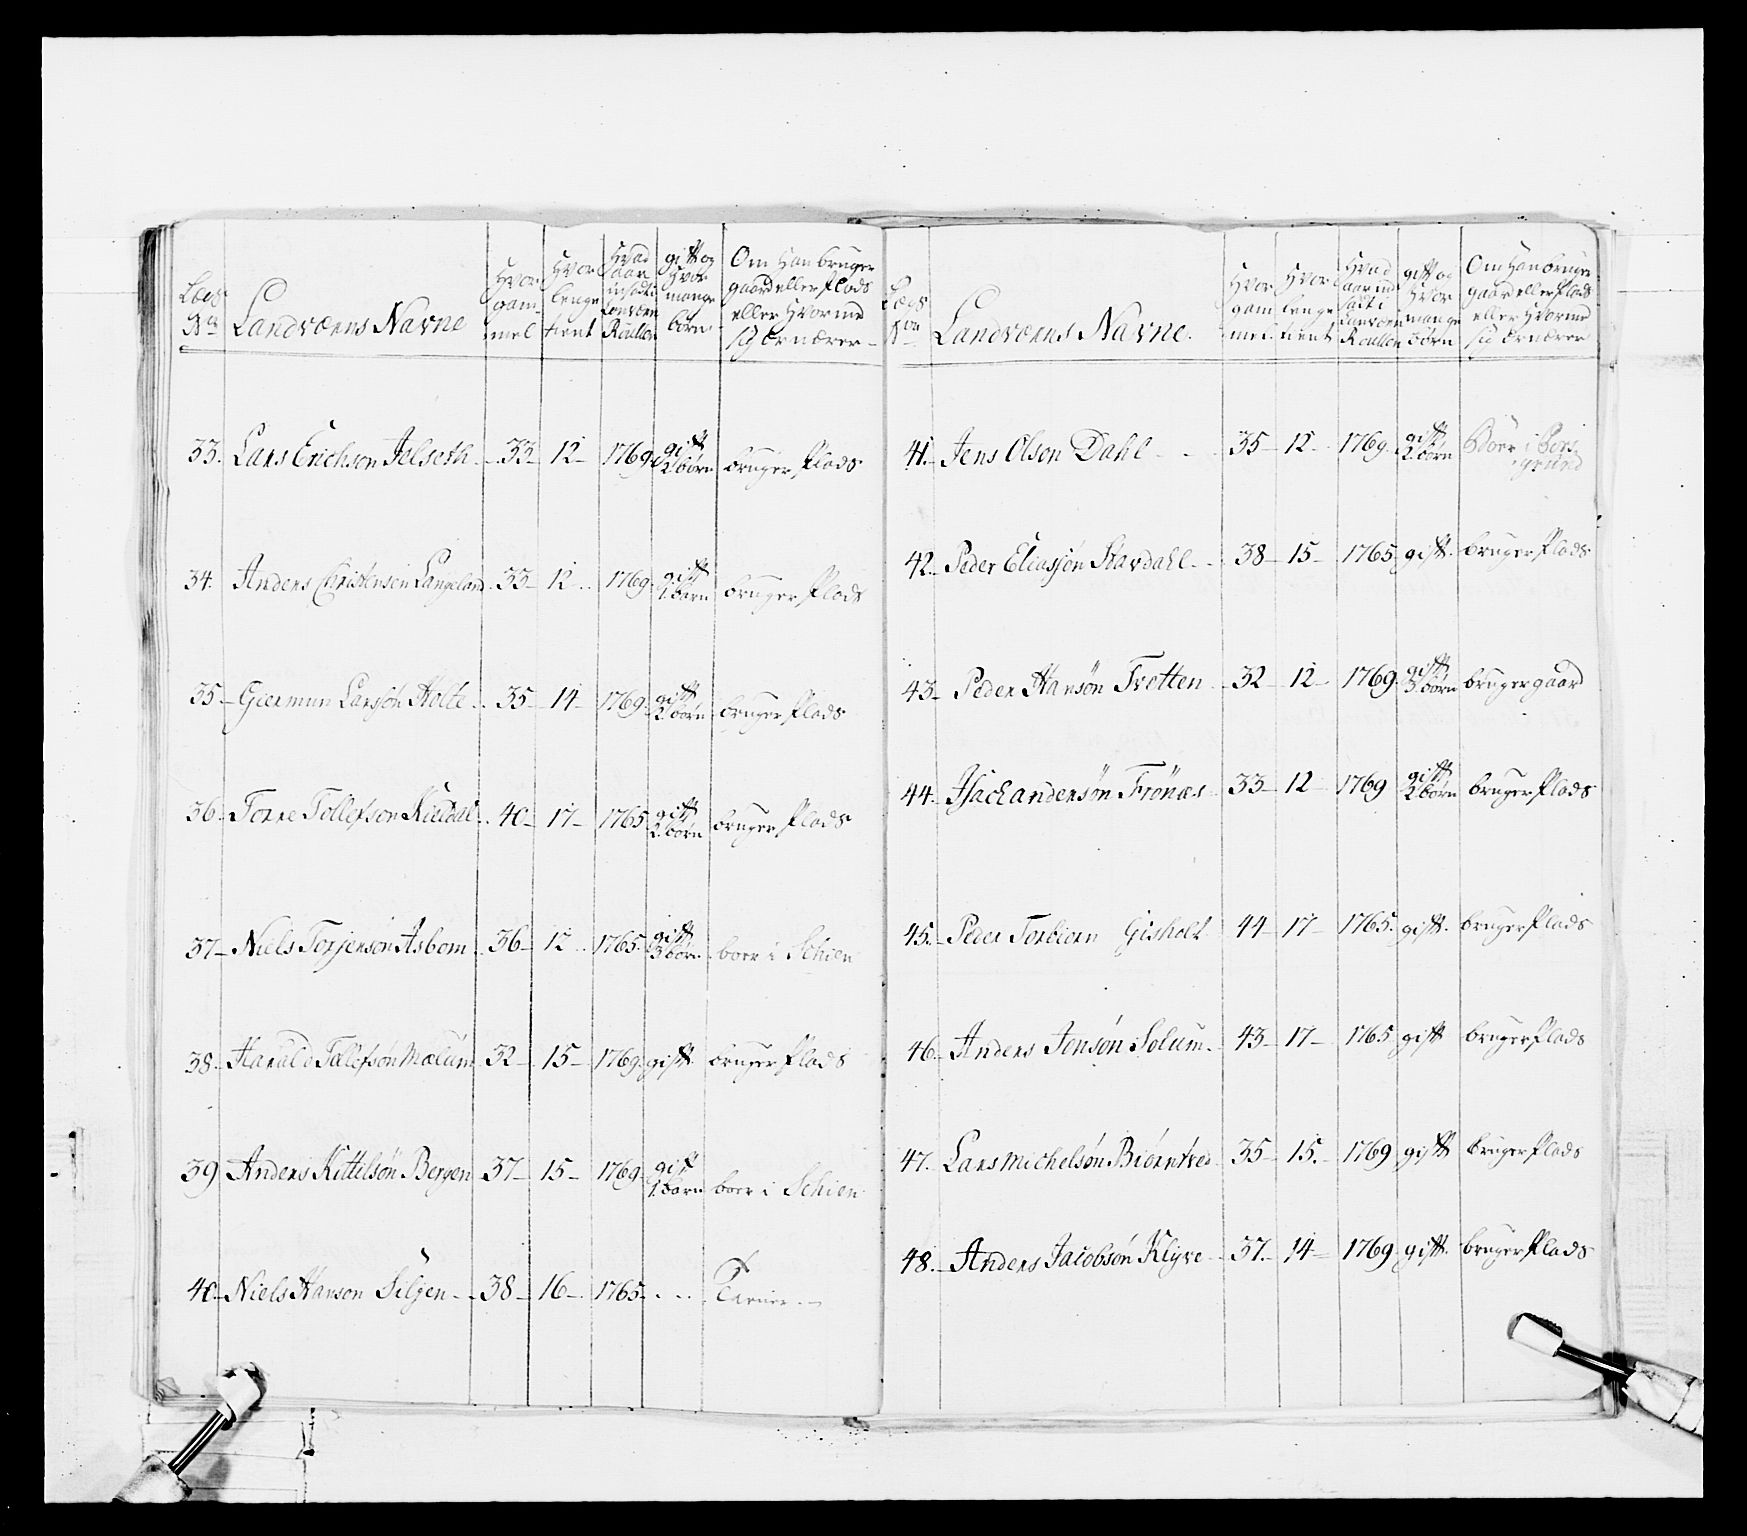 Læg
No
Landværns Navne
Hvor gam- mel
Hvor lenge tient
Hvad aar indsadt i Lanværn Roullen
gift og Hvor mange börn
Om Han bruger gaard eller Plads eller Hvormed sig ernærer
33. Lars Erichson Jelseth 33 12 1769 gift 2 börn bruger Plads
34. Anders Christensen Langeland 33 12 1769 gift 1. barn bruger Plads
35 Giermun Larssön Holte 35 14 1769 gift 2. börn bruger Plads
36 Torre Tollefson Kieldal 40 17 1765 gift 2. börn bruger Plads
37 Niels Torjenson Asbom 36 12 1765 gift 3 börn boer i Schien
38. Harald Tollefsön Mælum 32 15 1769 gift bruger Plads
39 Anders Kittilsön Bergen 37 15 1769 gift 1. barn boer i Schien
40 Niels Hanson Siljen 38 16 1765 Tienner
Læg No
Landværns Navne.
Hvor gam mel
Hvor lenge tient
Hvad aar ind sadt i Lanværn Roullen
gift og Hvor mange börn
Om Han bruger gaard eller Plads eller Hvormed sig ernærer
41. Jens Olson Dahl 35 12 1769 gift 2 börn Boer i Pors grund
42. Peder Eliassön Stavdahl 38 15 1765 gift bruger Plads
43 Peder Hansön Tvetten 32 12 1769 gift 3 börn bruger gaard
44 Isach andersön Frönæs 33 12 1769 gift 2 börn bruger Plads
45. Peder Torbiorn Gisholt 44 17 1765 gift. bruger Plads
46 Anders Jensön Solum 43 17 1765 gift bruger Plads
47. Lars Michelsön Biörntved 35 15. 1769 gift bruger Plads
48. Anders Jacobsön Klyve 37 14 1769 gift. bruger Plads